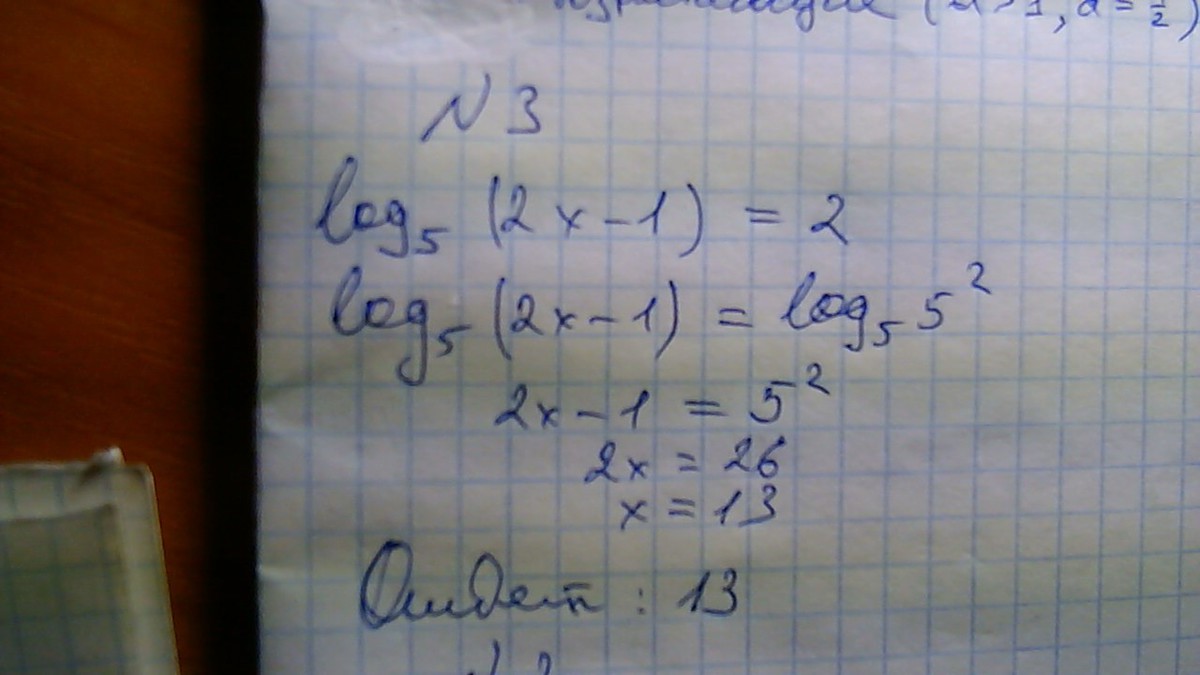 N 3
log₅ (2x-1) = 2
log₅ (2x-1) = log₅ 5²
2x-1 = 5²
2x = 26
x = 13
Ответ : 13